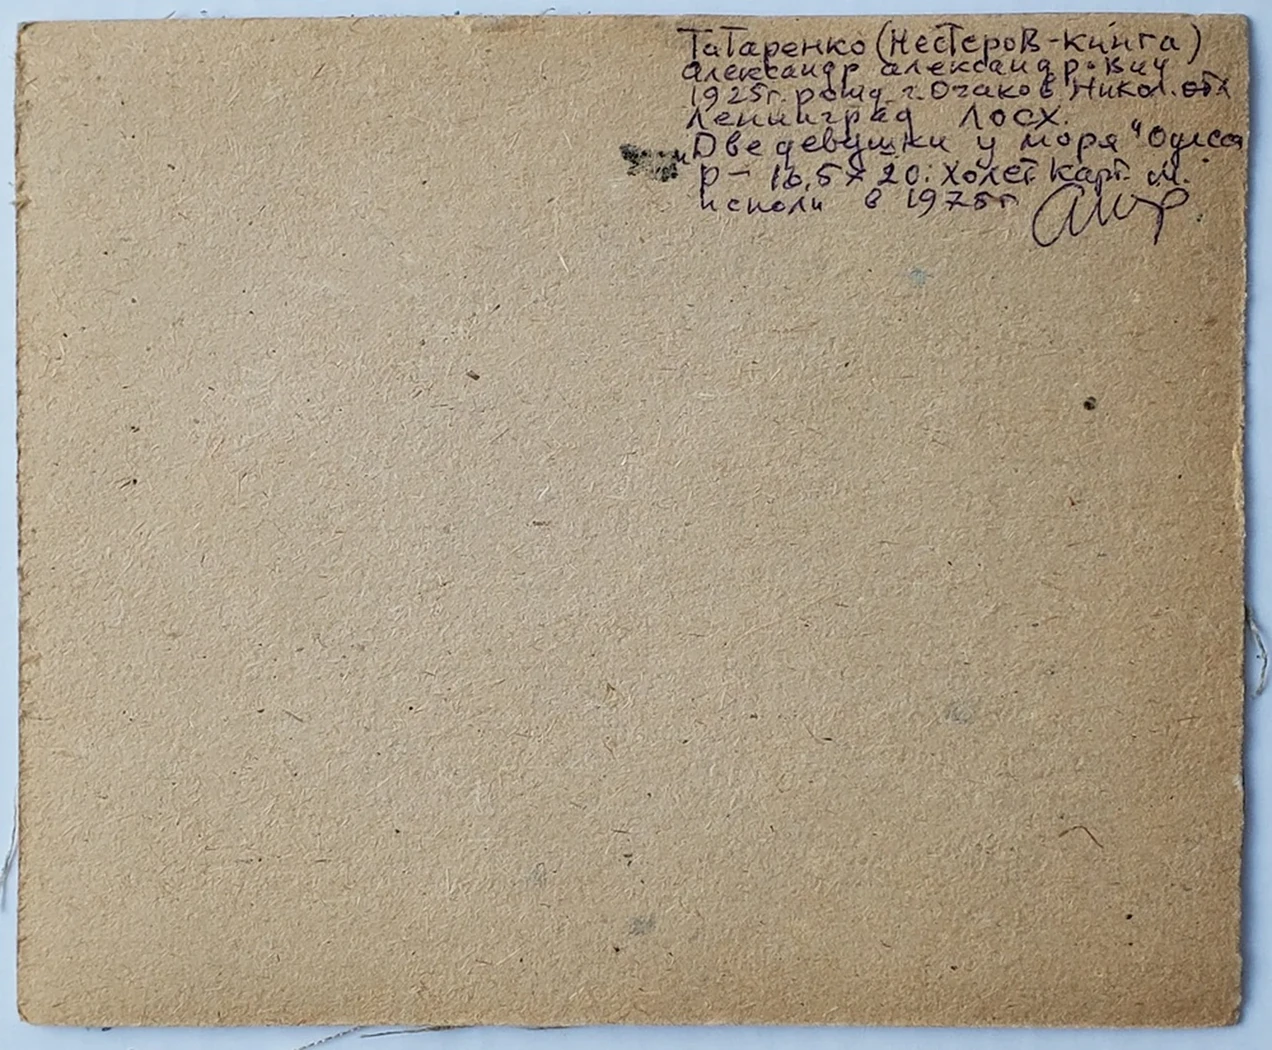 Татаренко (Нестеров-Кинга)
Александр Александрович
1925г. рожд. г. Очаков Никол. обл
Ленинград ЛОСХ.
„Две девушки у моря" Одесса
р - 16,5 х 20. Холст карт. м.
исполн в 1975г